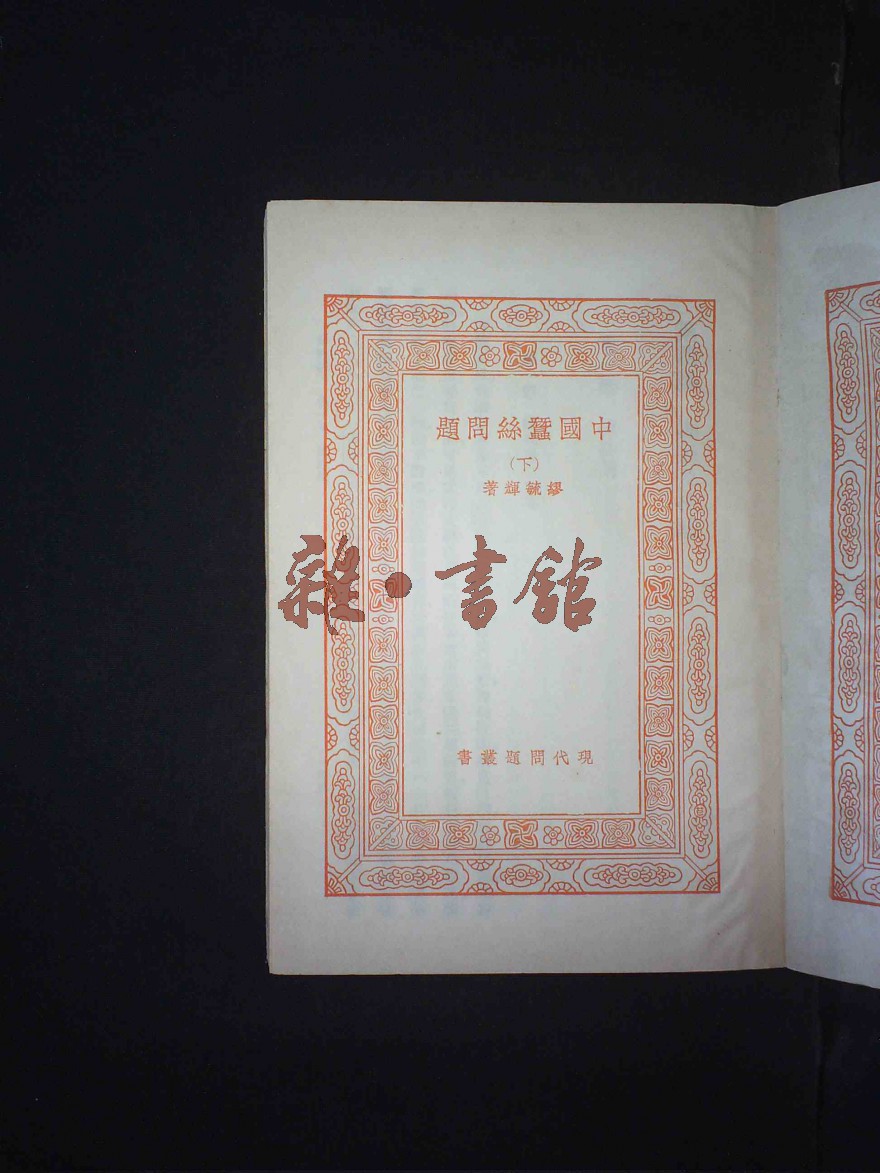 中國蠶絲問題
（下）
繆毓輝著
雜·書館
現代問題叢書